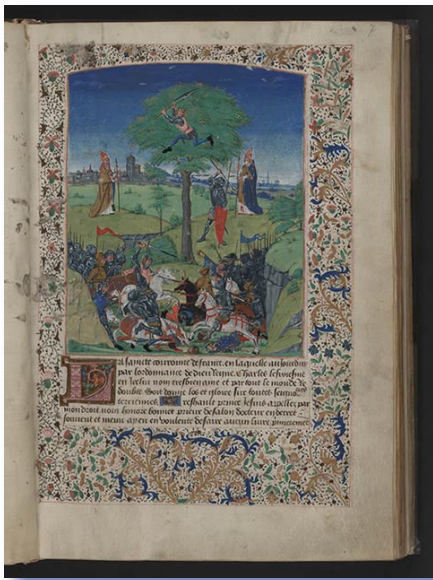 A la saincte couronne de france en laquelle au jourduy
par lordonnance de dieu regne Charles le sixiesme
en icelui nom tresbien ame et par tout le monde re
doubte Soit donne los et gloire sur toutes seignou
terriennes Treshault prince je suis appelle par
mon droit nom honore bonnet prieur de salon docteur en decret
souvent et menu ay eu en voulente de faire aucun livre premierement